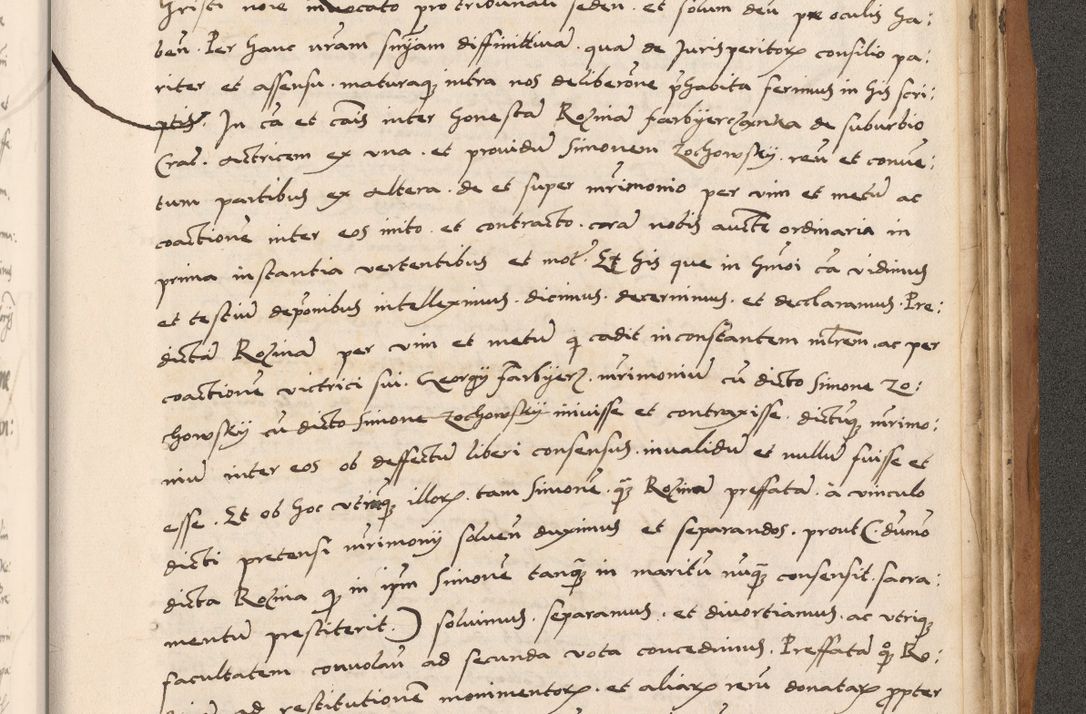 Hristi noie invocato pro tribunali seden. et solum deu pre oculis ha:
ben. Per hanc nram sniam diffinitiva. qua de Jurisperitorz consilio pa:
riter et assensu. maturaqz intra nos deliberone prhabita ferimus in his scri:
ptis. In ca et cais inter honesta Rozina farbyerczonka de suburbio
Crac. Actricem ex vna. et providu Simonem Zochowsky. reu et conve:
tum partibus ex altera. de et super mrimonio per vim et metu ac
coactione inter eos inito. et contracto. cora nobis aucte ordinaria in
prima instantia vertentibus et mot. Et his que in hmoi ca vidimus
et testiu deponibus intelleximus. dicimus. decernimus. et decclaramus. Pre:
dicta Rozina per vim et metu q cadit in constantem mlrem. ac per
coactione victrici sui. Georgy farbyerz. mrimoniu cu dicto Simone Zo:
chowsky cu dicto Simone Zochowsky inivisse et contraxisse. dictuqz mrimo:
niu inter eos ob deffectu liberi consensus. invalidu et nullu fuisse et
esse. Et ob hoc vtruqz illorz. tam Simone. qz Rozina preffata. a vinculo
dicti pretensi mrimony solven duximus et separandos. prout (. dumo
dicta Rozina qz in ipm Simone tanqz in maritu nuqz consensit. sacra:
mentu prestiterit.) solvimus. separamus. et divortiamus. ac vtriqz
facultatem convolan ad secunda vota concedimus. Preffata qz Ro:
ad restitutione monimentorz. et aliarz reru donatarz propter